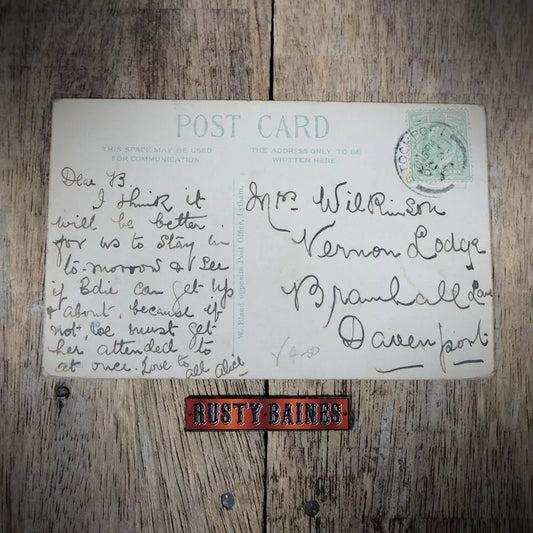 POST CARD
THIS SPACE MAY BE USED
FOR COMMUNICATION
THE ADDRESS ONLY TO BE
WRITTEN HERE
Dear B
I think it
will be better
for us to stay in
to-morrow & see
if Edie can get up
& about, because if
not, we must get
her attended to
at once. Love to all Alice
W. Bland opposite Post Office, Lytham.
Mrs Wilkinson
Vernon Lodge
Bramhall Lane
Davenport
STOCKPORT
RUSTY BAINES